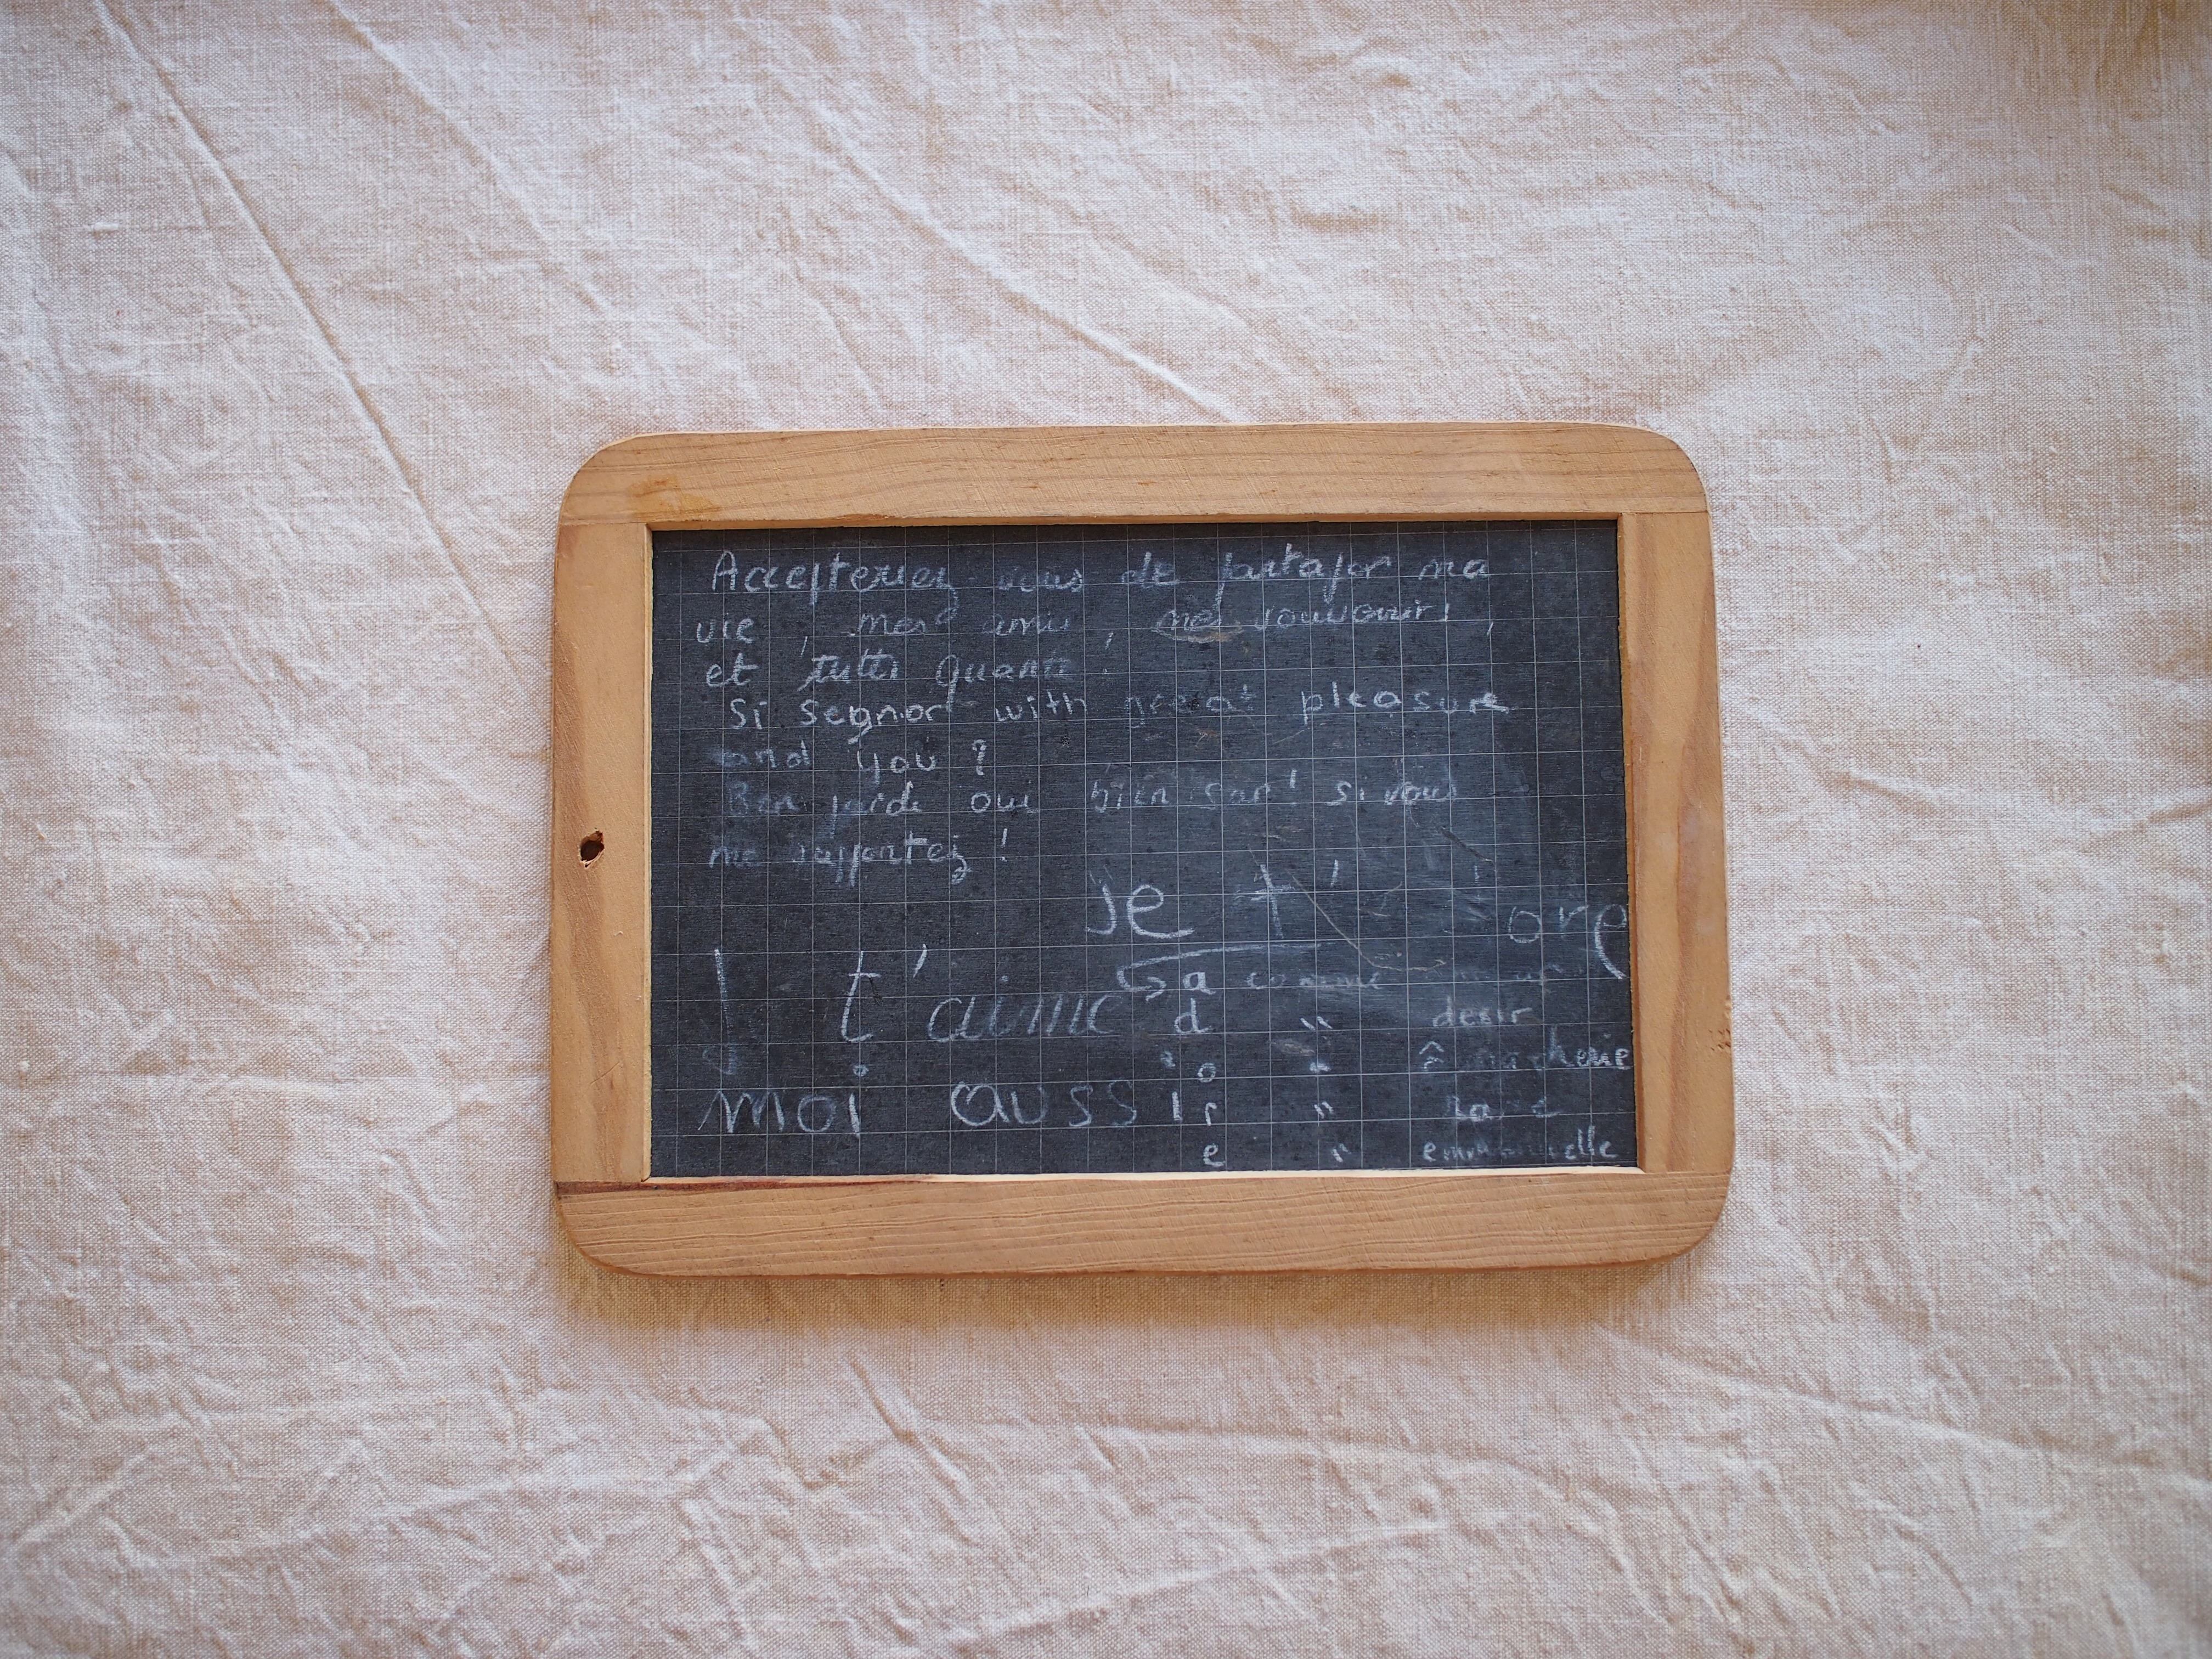 Accepteriez vous de partager ma
vie, mes amis, mes souvenirs,
et tutti quanti!
Si Segnor with great pleasure
and you?
oui bien sur! si vous
me supportez!
je t' ore
t'aime
a comme
d " desir
o "
moi aussi r "
e " emmanuelle